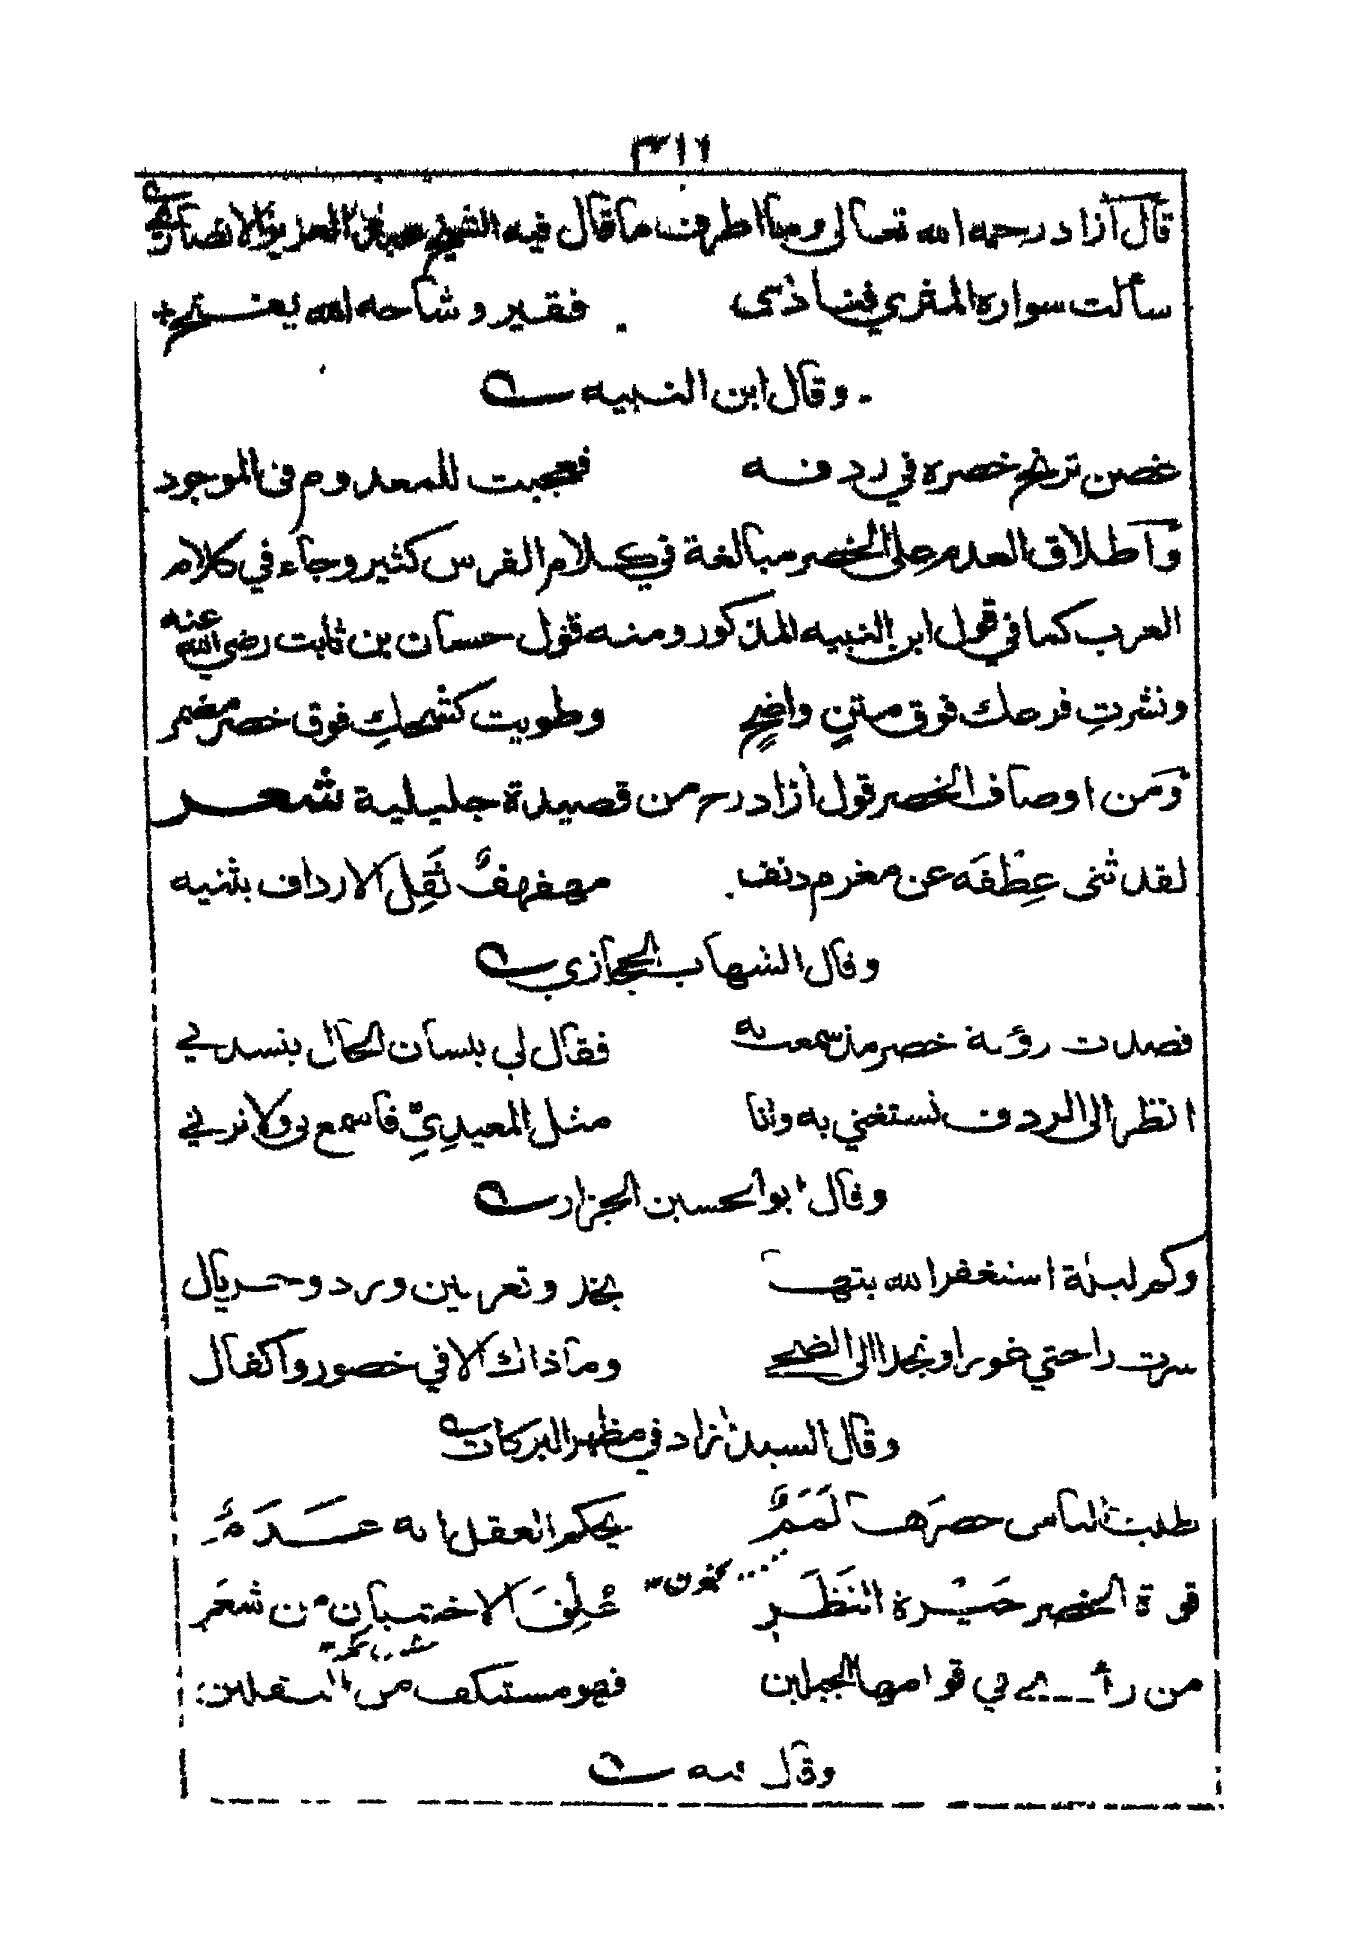 ٣١١
قال آزاد رحمه الله تعالى وما اطرف ما قال فيه الشيخ عبد العزيز الانصاري
سألت سواره المثري فنادى فقير وشاحه الله يفتح
وقال ابن النبيه
غصن ترنح خصره في ردفه فعجبت للمعدوم في الموجود
وآطلاق العدم على الخصر مبالغة في كلام الفرس كثير وجاء في كلام
العرب كما في قول ابن النبيه المذكور ومنه قول حسان بن ثابت رضي الله عنه
ونشرتِ فرعك فوق متنٍ واضحٍ وطويت كشحكِ فوق خصر مضمر
ومن اوصاف الخصر قول آزاد رح من قصيدة جليلية شعر
لقد ثنى عِطْفَه عن مغرم دنف مهفهفٌ ثَقِل الارداف بثنيه
وقال الشهاب الحجازي
قصدت رؤية خصر مذ سمعت به فقال لي بلسان الحال ينسدني
انظر الى الردف تستغني به وانا مثل المعيديِّ فاسمع بي ولا ترني
وقال ابو الحسين الجزار
وكم ليلة استغفر الله بتها بخد وتعر بين ورد وجريال
سرت راحتي غورا ونجدا الى الضحى وما ذاك الا في خصور واكفال
وقال السيد آزاد في مظهر البركات
طلبت الناس خصرها لَمَمٌ يحكم العقل انه عَدَمٌ
قوة الخصر حَيْرة النَظَر عُلِقَ الاختباران من شَعَر
من رأى في قوامها الجبلين فهو مستكف من الثقلين
وقال منه